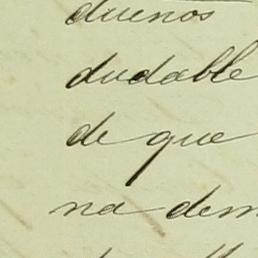 duenos
dudable
de que
na dem